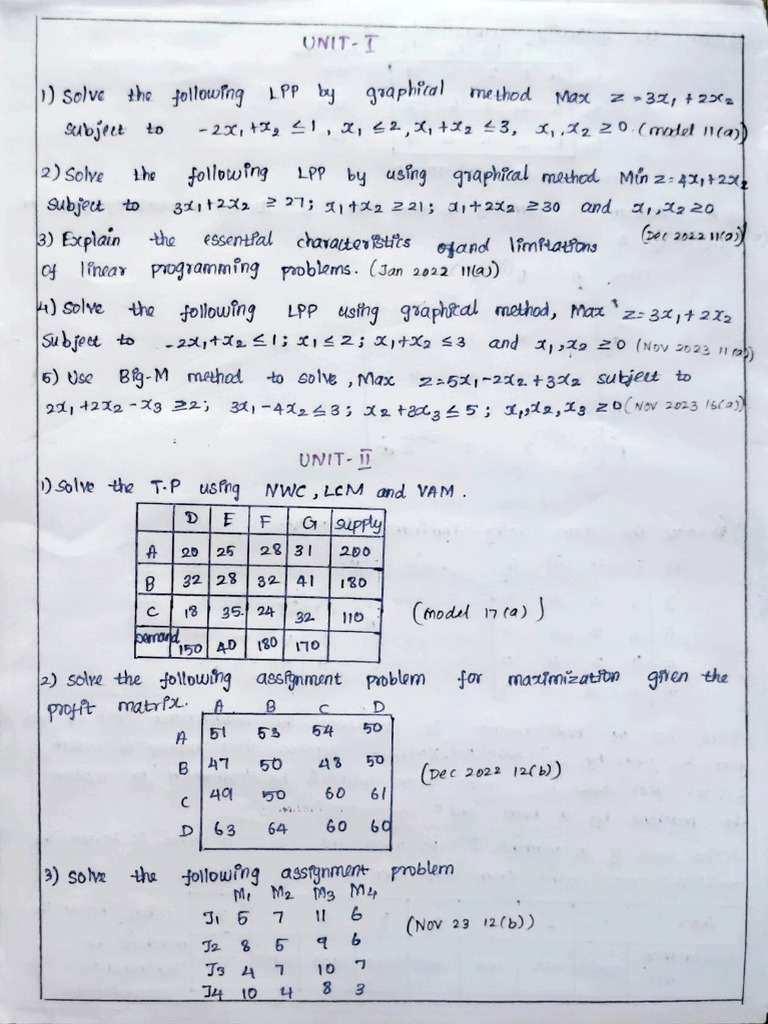 UNIT-I
1) Solve the following LPP by graphical method Max z = 3x₁ + 2x₂
subject to -2x₁+x₂ ≤ 1, x₁ ≤ 2, x₁+x₂ ≤ 3, x₁,x₂ ≥ 0. (model 11(a))
2) Solve the following LPP by using graphical method Min z = 4x₁+2x₂
subject to 3x₁+2x₂ ≥ 27; x₁+x₂ ≥ 21; x₁+2x₂ ≥ 30 and x₁,x₂ ≥ 0
(Dec 2022 11(a))
3) Explain the essential characteristics of and limitations
of linear programming problems. (Jan 2022 11(a))
4) Solve the following LPP using graphical method, Max z = 3x₁ + 2x₂
Subject to -2x₁+x₂ ≤ 1; x₁ ≤ 2; x₁+x₂ ≤ 3 and x₁,x₂ ≥ 0 (Nov 2023 11(a))
5) Use Big-M method to solve, Max z=5x₁-2x₂+3x₂ subject to
2x₁+2x₂-x₃ ≥ 2; 3x₁-4x₂ ≤ 3; x₂+3x₃ ≤ 5; x₁,x₂,x₃ ≥ 0 (Nov 2023 16(a))
UNIT-II
1) Solve the T.P using NWC, LCM and VAM.
D E F G supply
A 20 25 28 31 200
B 32 28 32 41 180
C 18 35 24 32 110
(model 17(a))
Demand 150 40 180 170
2) Solve the following assignment problem for maximization given the
profit matrix. A B C D
A 51 53 54 50
B 47 50 48 50
(Dec 2022 12(b))
C 49 50 60 61
D 63 64 60 60
3) Solve the following assignment problem
M₁ M₂ M₃ M4
J1 5 7 11 6
(Nov 23 12(b))
J2 8 5 9 6
J3 4 7 10 7
J4 10 4 8 3